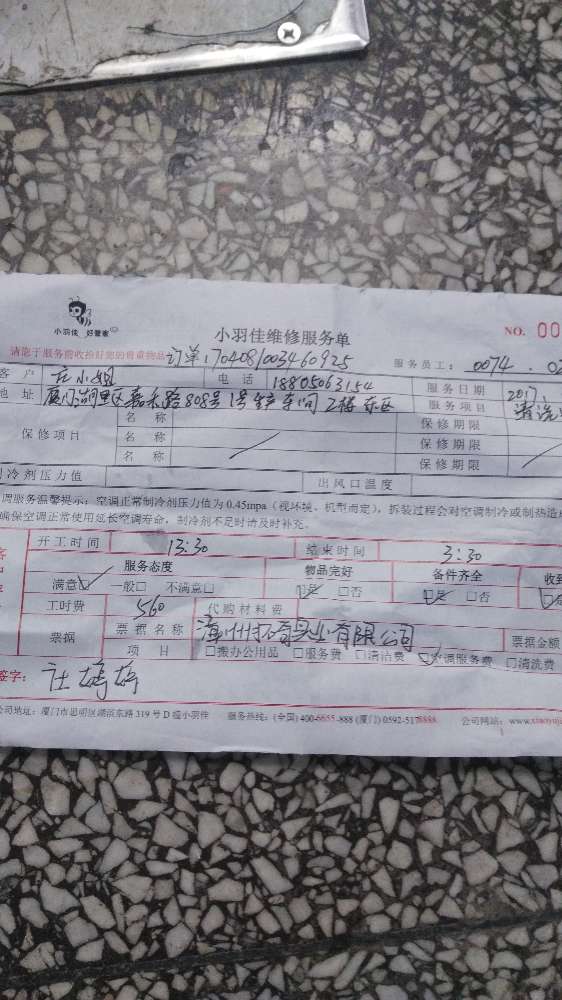 小羽佳 好管家
小羽佳维修服务单
NO. 00
请您于服务前收拾好您的贵重物品
订单:1704081003460925
服务员工: 0074 . 02
客 户 庄小姐 电 话 18805063154 服务日期 2017.
地 址 厦门湖里区嘉禾路808号1号生产车间2楼东区 服务项目 清洗
保修项目
名 称 保修期限
名 称 保修期限
名 称 保修期限
制冷剂压力值 出风口温度
调服务温馨提示:空调正常制冷剂压力值为 0.45mpa(视环境、机型而定),拆装过程会对空调制冷或制热造成
确保空调正常使用延长空调寿命,制冷剂不足时请及时补充。
开工时间 13:30 结束时间 3:30
服务态度 物品完好 备件齐全 收到
满意☑ 一般□ 不满意□ ☑是 □否 ☑是 □否
工时费 560 代购材料费
票据 票据名称 漳州 实业有限公司 票据金额
项 目 □搬办公用品 □服务费 □清洁费 ☑空调服务费 □清洗费
签字:
公司地址:厦门市思明区湖滨东路 319 号 D 幢小羽佳 服务热线:(全国) 400-6655-888 (厦门) 0592-5178888 公司网站:www.xiaoyuj